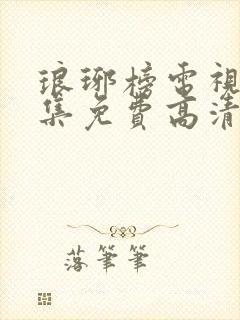 琅琊榜電視
集免費高清
落筆筆